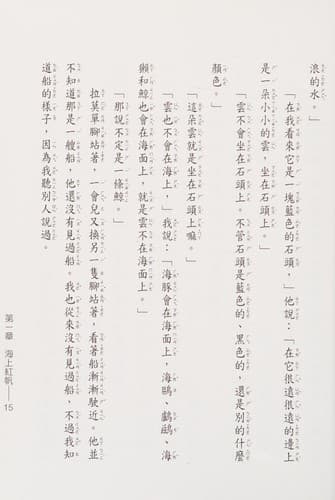 浪的水。」
「在我看來它是一塊藍色的石頭，」他說：「在它很遠很遠的邊上
是一朵小小的雲，坐在石頭上。」
「雲不會坐在石頭上。不管石頭是藍色的、黑色的，還是別的什麼
顏色。」
「這朵雲就是坐在石頭上嘛。」
「雲也不會在海上，」我說：「海豚會在海面上，海鷗、鸕鷀、海
獺和鯨也會在海面上，就是雲不在海面上。」
「那說不定是一條鯨。」
拉莫單腳站著，一會兒又換另一隻腳站著，看著船漸漸駛近。他並
不知道那是一艘船，他還沒有見過船。我也從來沒有見過船，不過我知
道船的樣子，因為我聽別人說過。
第一章 海上紅帆——15